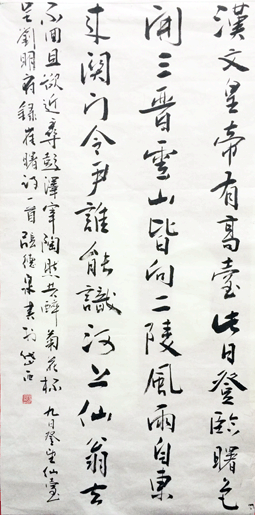 漢文皇帝有高臺此日登臨曙色
開三晉雲山皆向二陵風雨自東
來關門令尹誰能識河上仙翁去
不回且欲近尋彭澤宰陶然共醉菊花杯 九日登望仙臺
呈劉明府 錄崔曙詩一首